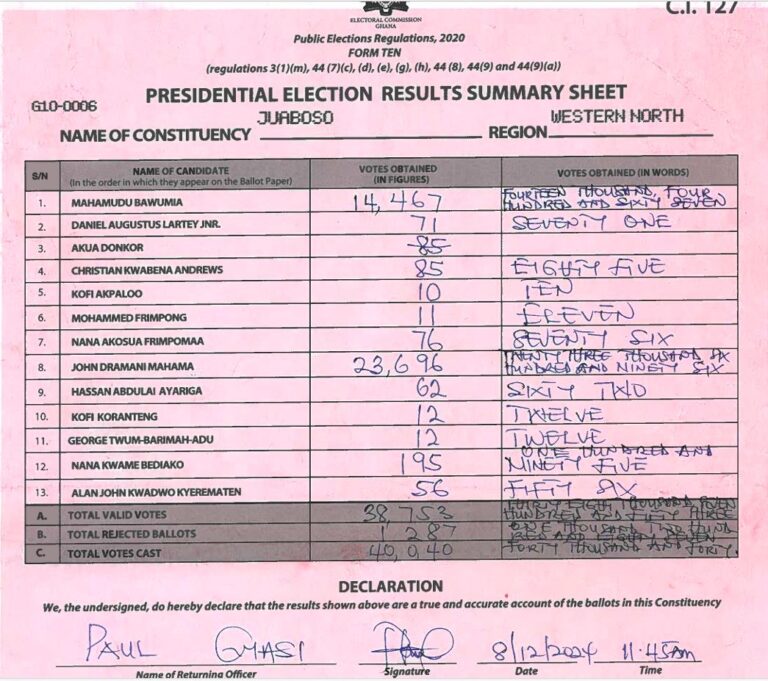 C.I. 127
ELECTORAL COMMISSION
GHANA
Public Elections Regulations, 2020
FORM TEN
(regulations 3(1)(m), 44 (7)(c), (d), (e), (g), (h), 44 (8), 44(9) and 44(9)(a))
PRESIDENTIAL ELECTION RESULTS SUMMARY SHEET
G10-0006
NAME OF CONSTITUENCY JUABOSO REGION WESTERN NORTH
S/N NAME OF CANDIDATE (In the order in which they appear on the Ballot Paper) VOTES OBTAINED (IN FIGURES) VOTES OBTAINED (IN WORDS)
1. MAHAMUDU BAWUMIA 14,467 FOURTEEN THOUSAND, FOUR
HUNDRED AND SIXTY SEVEN
2. DANIEL AUGUSTUS LARTEY JNR. 71 SEVENTY ONE
3. AKUA DONKOR 85
4. CHRISTIAN KWABENA ANDREWS 85 EIGHTY FIVE
5. KOFI AKPALOO 10 TEN
6. MOHAMMED FRIMPONG 11 ELEVEN
7. NANA AKOSUA FRIMPOMAA 76 SEVENTY SIX
8. JOHN DRAMANI MAHAMA 23,696 TWENTY THREE THOUSAND SIX
HUNDRED AND NINETY SIX
9. HASSAN ABDULAI AYARIGA 62 SIXTY TWO
10. KOFI KORANTENG 12 TWELVE
11. GEORGE TWUM-BARIMAH-ADU 12 TWELVE
12. NANA KWAME BEDIAKO 195 ONE HUNDRED AND
NINETY FIVE
13. ALAN JOHN KWADWO KYEREMATEN 56 FIFTY SIX
A. TOTAL VALID VOTES 38,753 THIRTY EIGHT THOUSAND SEVEN
HUNDRED AND FIFTY THREE
B. TOTAL REJECTED BALLOTS 1 287 ONE THOUSAND TWO HUND
RED AND EIGHTY SEVEN
C. TOTAL VOTES CAST 40,040 FORTY THOUSAND AND FORTY.
DECLARATION
We, the undersigned, do hereby declare that the results shown above are a true and accurate account of the ballots in this Constituency
PAUL GYASI 8/12/2024 11:45am
Name of Returning Officer Signature Date Time